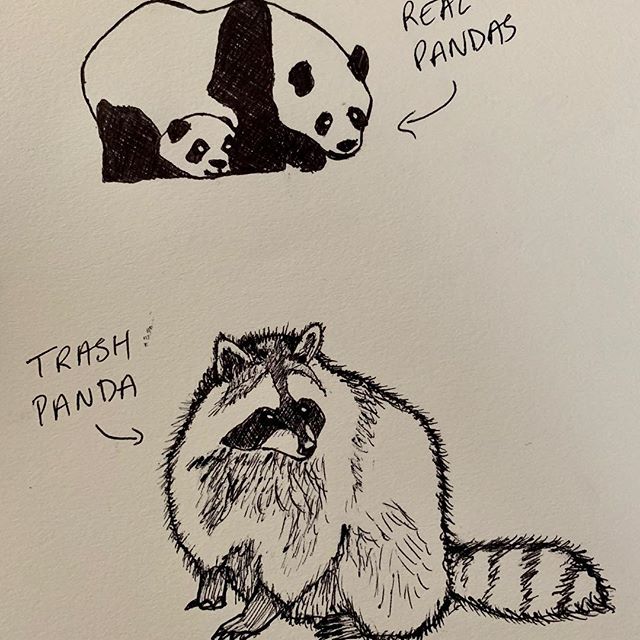 REAL
PANDAS
TRASH
PANDA